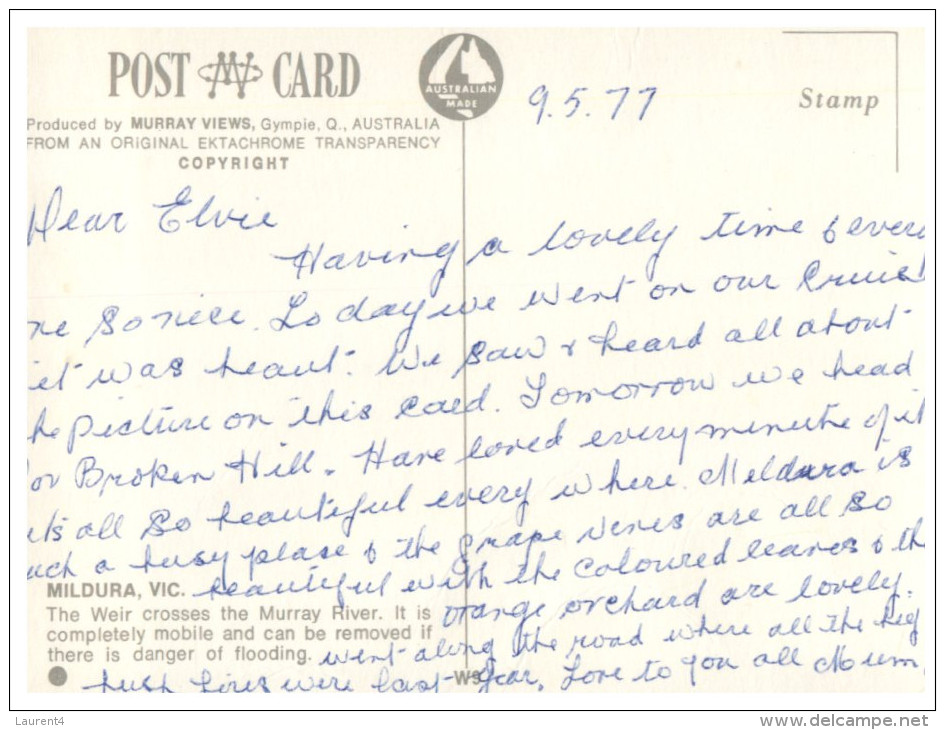 POST CARD
AUSTRALIAN
MADE
9.5.77
Stamp
Produced by MURRAY VIEWS, Gympie, Q., AUSTRALIA
FROM AN ORIGINAL EKTACHROME TRANSPARENCY
COPYRIGHT
Dear Elvie
Having a lovely time & every
ne so nice. To day we went on our Cruise
it was beaut. We saw & heard all about
he picture on this card. Tomorrow we head
for Broken Hill. Have loved every minute of it
its all so beautiful every where. Mildura is
uch a busy place & the grape vines are all so
beautiful with the coloured leaves & the
orange orchard are lovely.
went along the road where all the big
bush fires were last year. Love to you all Mum.
MILDURA, VIC.
The Weir crosses the Murray River. It is
completely mobile and can be removed if
there is danger of flooding.
Laurent4
www.delcampe.net